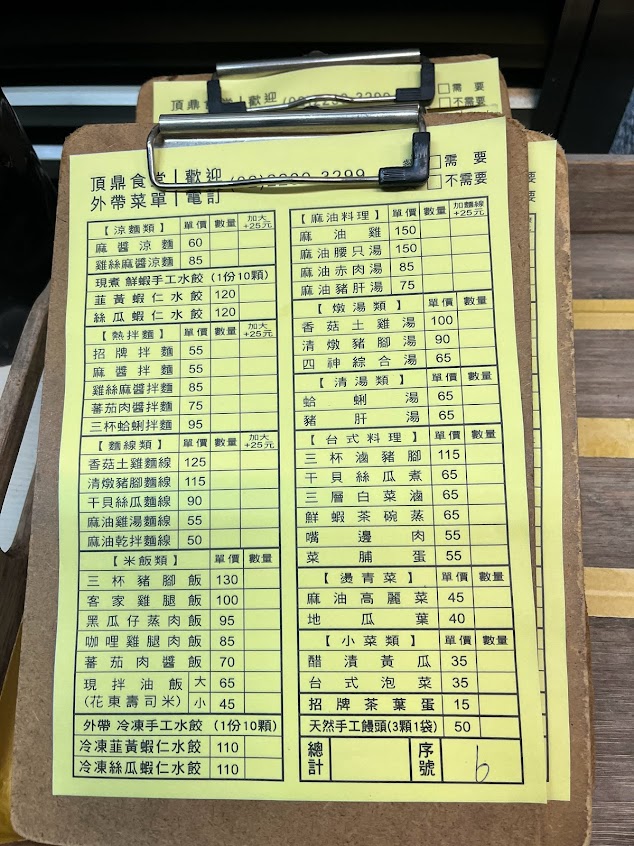 頂鼎食堂 歡迎
需 要
不需要
頂鼎食堂 歡迎
外帶菜單 電訂
需 要
不需要
【涼麵類】 單價 數量 加大+25元
麻醬涼麵 60
雞絲麻醬涼麵 85
現煮 鮮蝦手工水餃 (1份10顆)
韮黃蝦仁水餃 120
絲瓜蝦仁水餃 120
【熱拌麵】 單價 數量 加大+25元
招牌拌麵 55
麻醬拌麵 55
雞絲麻醬拌麵 85
蕃茄肉醬拌麵 75
三杯蛤蜊拌麵 95
【麵線類】 單價 數量 加大+25元
香菇土雞麵線 125
清燉豬腳麵線 115
干貝絲瓜麵線 90
麻油雞湯麵線 55
麻油乾拌麵線 50
【米飯類】 單價 數量
三杯豬腳飯 130
客家雞腿飯 100
黑瓜仔蒸肉飯 95
咖哩雞腿肉飯 85
蕃茄肉醬飯 70
現拌油飯 大 65
(花東壽司米) 小 45
外帶 冷凍手工水餃 (1份10顆)
冷凍韮黃蝦仁水餃 110
冷凍絲瓜蝦仁水餃 110
【麻油料理】 單價 數量 加麵線+25元
麻油雞 150
麻油腰只湯 150
麻油赤肉湯 85
麻油豬肝湯 75
【燉湯類】 單價 數量
香菇土雞湯 100
清燉豬腳湯 90
四神綜合湯 65
【清湯類】 單價 數量
蛤蜊湯 65
豬肝湯 65
【台式料理】 單價 數量
三杯滷豬腳 115
干貝絲瓜煮 65
三層白菜滷 65
鮮蝦茶碗蒸 65
嘴邊肉 55
菜脯蛋 55
【燙青菜】 單價 數量
麻油高麗菜 45
地瓜葉 40
【小菜類】 單價 數量
醋漬黃瓜 35
台式泡菜 35
招牌茶葉蛋 15
天然手工饅頭(3顆1袋) 50
總計 序號 6